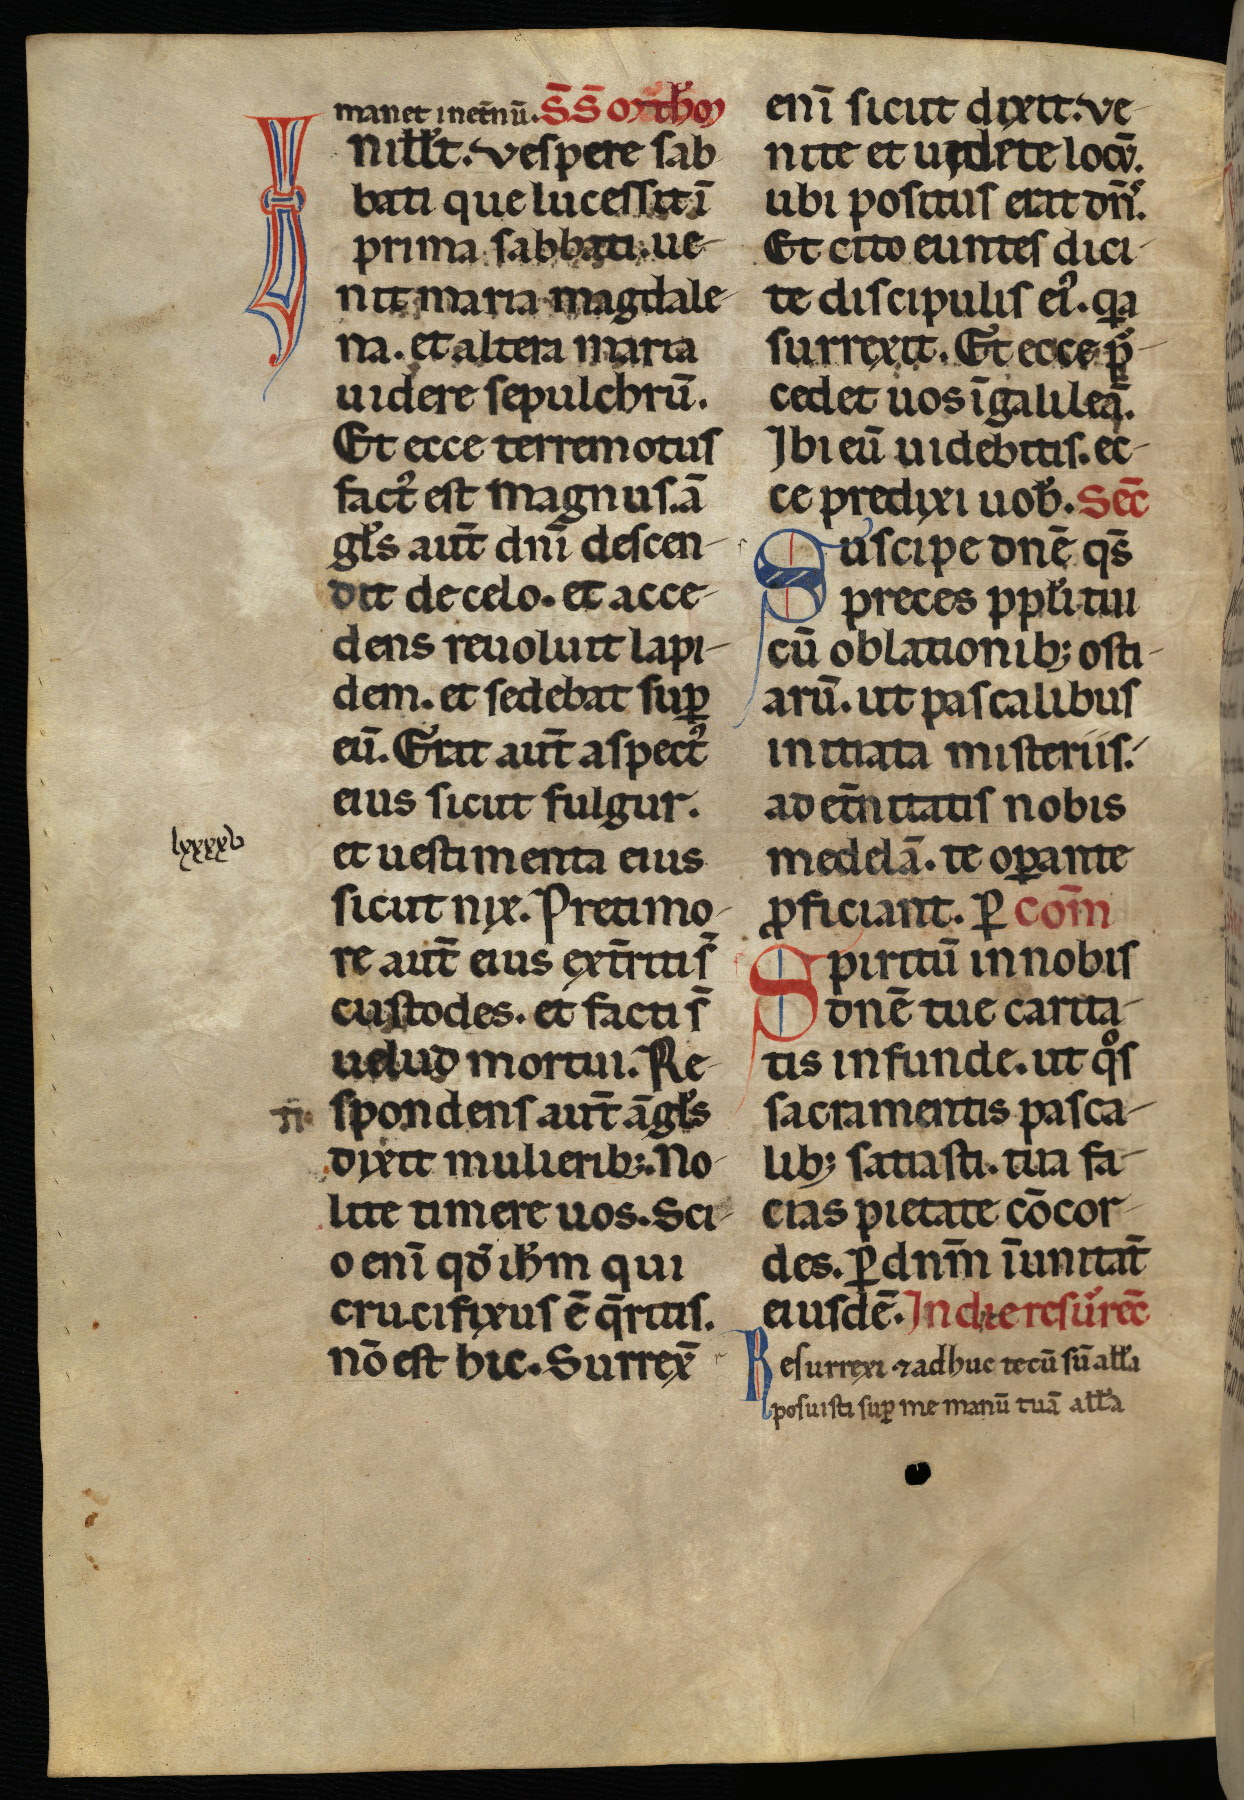 manet inet̄nū. S̄S̄ Matheū
Nill̄t. Vespere sab
bati que lucessit ī
prima sabbati. ue-
nit maria magdale-
na. et altera maria
uidere sepulchrū.
Et ecce terremotus
factꝰ est magnus. ā
gl̄s aut̄ dn̄i descen-
dit de celo. et acce-
dens reuoluit lapi-
dem. et sedebat suꝑ
eū. Erat aut̄ aspectꝰ
eius sicut fulgur.
et uestimenta eius
sicut nix. Pre timo-
re aut̄ eius ext̄riti s̄
custodes. et facti s̄
uelud mortui. Re-
spondens aut̄ āgl̄s
dixit mulierib;. No-
lite timere uos. Sci-
o enī qd̄ ih̄m qui
crucifixus ē q̄ritis.
nō est hic. Surrex̄
lxxxxv
enī sicut dixit. Ve-
nite et uidete locū.
ubi positus erat dn̄s.
Et cito euntes dici-
te discipulis eiꝰ. qa
surrexit. Et ecce p̄-
cedet uos ī galileā.
Ibi eū uidebitis. ec-
ce predixi uob̄. Sec̄
Suscipe dn̄e qs̄
preces ppl̄i tui
cū oblationib; osti-
arū. ut pascalibus
initiata misteriis.
ad et̄nitatis nobis
medelā. te oꝑante
ꝓficiant. ꝑ com̄
Spiritū in nobis
dn̄e tue carita-
tis infunde. ut qͦs
sacramentis pasca-
lib; satiasti. tua fa-
cias pietate cōcor-
des. ꝑ dn̄m ī unitat̄
eiusdē. In die resurec̄
Resurrexi ⁊ adhuc tecū sū all̄a
posuisti suꝑ me manū tuā all̄a